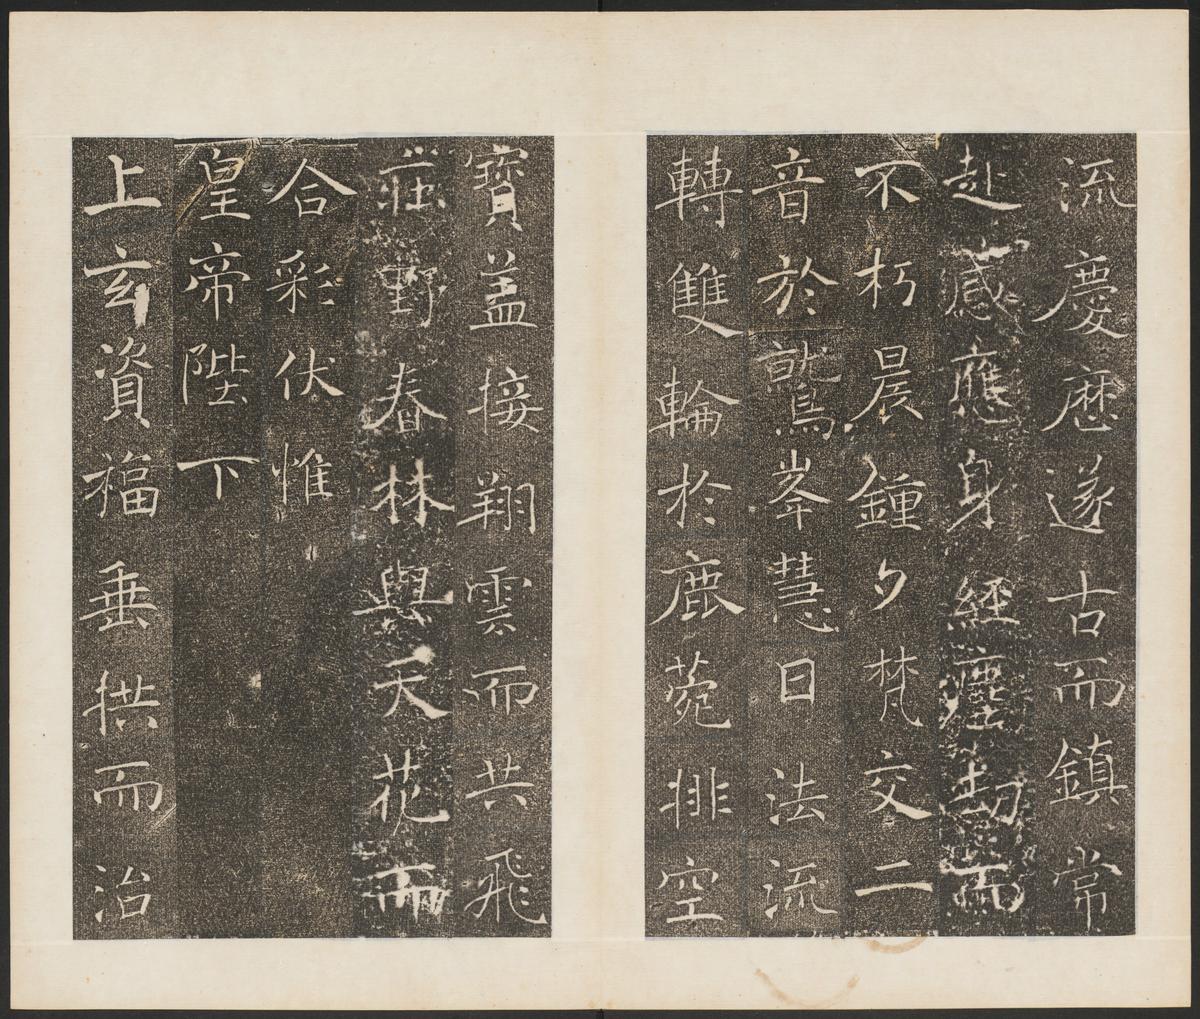 流慶歷遂古而鎮常
赴感應身經塵劫而
不朽晨鍾夕梵交二
音於鷲峯慧日法流
轉雙輪於鹿菀排空
寶盖接翔雲而共飛
莊野春林與天花而
合彩伏惟
皇帝陛下
上玄資福垂拱而治